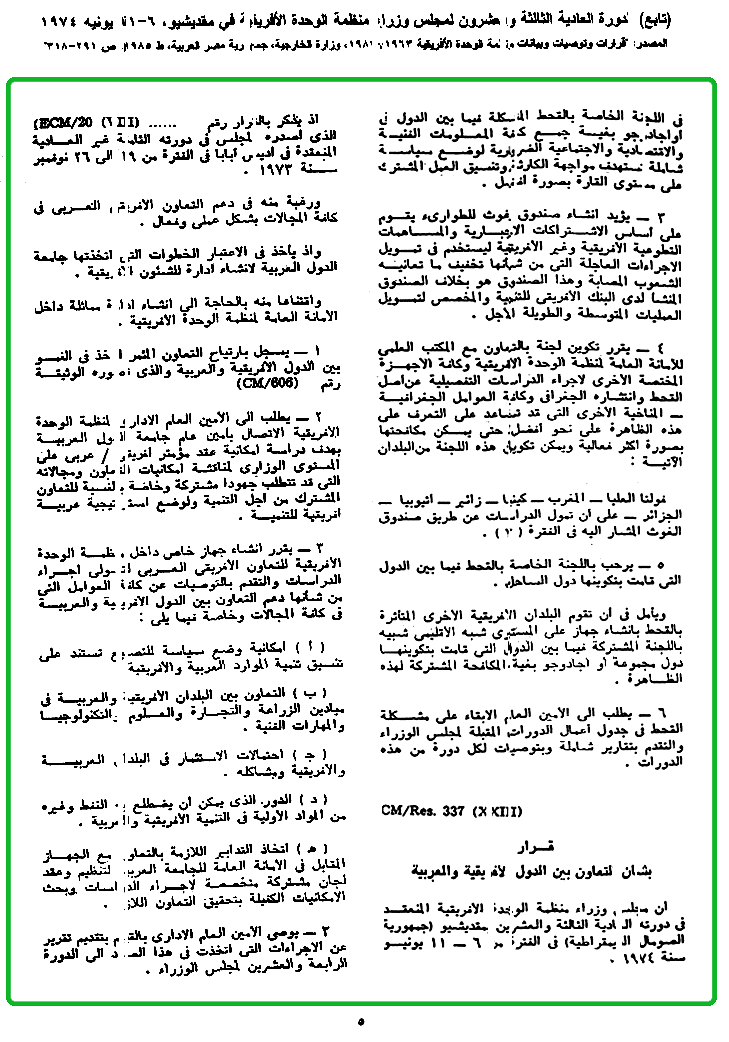 (تابع) الدورة العادية الثالثة والعشرون لمجلس وزراء منظمة الوحدة الأفريقية في مقديشيو، ٦-١١ يونيه ١٩٧٤
المصدر: قرارات وتوصيات وبيانات منظمة الوحدة الأفريقية ١٩٦٣، ١٩٨١، وزارة الخارجية، جمهورية مصر العربية، ط ١٩٨٥، ص ٢٩١-٣١٨
فى اللجنة الخاصة بالقحط المشكلة فيما بين الدول فى
اواجادوجو بغية جمع كافة المعلومات الفنية
والاقتصادية والاجتماعية الضرورية لوضع سياسة
شاملة تستهدف مواجهة الكارثة وتنسيق العمل المشترك
على مستوى القارة بصورة افضل .
٣ — يؤيد انشاء صندوق غوث للطوارىء يقوم
على اساس الاشتراكات الاختيارية والمساهمات
التطوعية الأفريقية وغير الأفريقية ليستخدم فى تمويل
الاجراءات العاجلة التى من شأنها تخفيف ما تعانيه
الشعوب المصابة وهذا الصندوق هو بخلاف الصندوق
المنشأ لدى البنك الأفريقى للتنمية والمخصص لتمويل
العمليات المتوسطة والطويلة الأجل .
٤ — يقرر تكوين لجنة بالتعاون مع المكتب العلمى
للأمانة العامة لمنظمة الوحدة الأفريقية وكافة الأجهزة
المختصة الأخرى لاجراء الدراسات التفصيلية عن اصل
القحط وانتشاره الجغرافى وكافة العوامل الجغرافية
— المناخية الأخرى التى قد تساعد على التعرف على
هذه الظاهرة على نحو افضل حتى يمكن مكافحتها
بصورة أكثر فعالية ويمكن تكوين هذه اللجنة من البلدان
الآتية :
فولتا العليا — المغرب — كينيا — زائير — اثيوبيا —
الجزائر — على ان تمول الدراسات عن طريق صندوق
الغوث المشار اليه فى الفقرة (٣) .
٥ — يرحب باللجنة الخاصة بالقحط فيما بين الدول
التى قامت بتكوينها دول الساحل .
ويأمل فى ان تقوم البلدان الأفريقية الأخرى المتأثرة
بالقحط بانشاء جهاز على المستوى شبه الاقليمى شبيه
باللجنة المشتركة فيما بين الدول التى قامت بتكوينها
دول مجموعة أواجادوجو بغية المكافحة المشتركة لهذه
الظاهرة .
٦ — يطلب الى الأمين العام الابقاء على مشكلة
القحط فى جدول أعمال الدورات المقبلة لمجلس الوزراء
والتقدم بتقارير شاملة وبتوصيات لكل دورة من هذه
الدورات .
CM/Res. 337 (XXIII)
قرار
بشأن التعاون بين الدول الأفريقية والعربية
ان مجلس وزراء منظمة الوحدة الأفريقية المنعقد
فى دورته العادية الثالثة والعشرين بمقديشيو (جمهورية
الصومال الديمقراطية) فى الفترة من ٦ — ١١ يونيو
سنة ١٩٧٤ .
اذ يذكر بالقرار رقم ...... ECM/20 (VIII)
الذى اصدره المجلس فى دورته الثامنة غير العادية
المنعقدة فى اديس أبابا فى الفترة من ١٩ الى ٢٦ نوفمبر
سنة ١٩٧٣ .
ورغبة منه فى دعم التعاون الأفريقى العربى فى
كافة المجالات بشكل عملى وفعال .
واذ يأخذ فى الاعتبار الخطوات التى اتخذتها جامعة
الدول العربية لانشاء ادارة للشئون الأفريقية .
واقتناعا منه بالحاجة الى انشاء ادارة مماثلة داخل
الأمانة العامة لمنظمة الوحدة الأفريقية .
١ — يسجل بارتياح التعاون المثمر الآخذ فى النمو
بين الدول الأفريقية والعربية والذى تصوره الوثيقة
رقم (CM/606)
٢ — يطلب الى الأمين العام الادارى لمنظمة الوحدة
الأفريقية الاتصال بأمين عام جامعة الدول العربية
بهدف دراسة امكانية عقد مؤتمر أفريقى / عربى على
المستوى الوزارى لمناقشة امكانيات التعاون ومجالاته
التى قد تتطلب جهودا مشتركة وخاصة بالنسبة للتعاون
المشترك من أجل التنمية ولوضع استراتيجية عربية
أفريقية للتنمية .
٣ — يقرر انشاء جهاز خاص داخل منظمة الوحدة
الأفريقية للتعاون الأفريقى العربى يتولى اجراء
الدراسات والتقدم بالتوصيات عن كافة العوامل التى
من شأنها دعم التعاون بين الدول الأفريقية والعربية
فى كافة المجالات وخاصة فيما يلى :
( أ ) امكانية وضع سياسة للتصنيع تستند على
تنسيق تنمية الموارد العربية والأفريقية
( ب ) التعاون بين البلدان الأفريقية والعربية فى
ميادين الزراعة والتجارة والعلوم والتكنولوجيا
والمهارات الفنية .
( ج ) احتمالات الاستثمار فى البلدان العربية
والأفريقية ومشاكله .
( د ) الدور الذى يمكن ان يضطلع به النفط وغيره
من المواد الأولية فى التنمية الأفريقية والعربية .
( ه ) اتخاذ التدابير اللازمة بالتعاون مع الجهاز
المقابل فى الأمانة العامة للجامعة العربية لتنظيم وعقد
لجان مشتركة متخصصة لاجراء الدراسات وبحث
الامكانيات الكفيلة بتحقيق التعاون اللازم .
٢ — يوصى الأمين العام الادارى بالقيام بتقديم تقرير
عن الاجراءات التى اتخذت فى هذا الصدد الى الدورة
الرابعة والعشرين لمجلس الوزراء .
٥